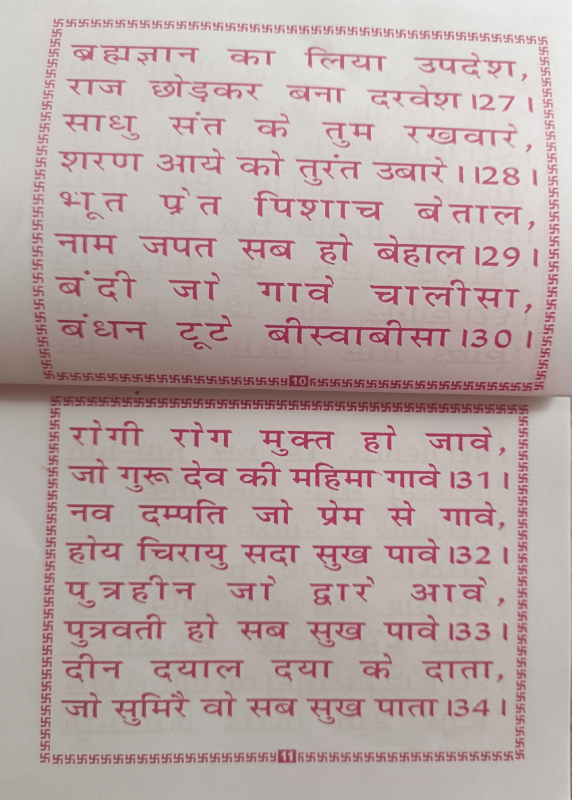 ब्रह्मज्ञान का लिया उपदेश,
राज छोड़कर बना दरवेश।27।
साधु संत के तुम रखवारे,
शरण आये को तुरंत उबारे।।28।
भूत प्रेत पिशाच बेताल,
नाम जपत सब हो बेहाल।29।
बंदी जो गावे चालीसा,
बंधन टूटे बीस्वाबीसा।30।
10
रोगी रोग मुक्त हो जावे,
जो गुरू देव की महिमा गावे।31।
नव दम्पति जो प्रेम से गावे,
होय चिरायु सदा सुख पावे।32।
पुत्रहीन जो द्वारे आवे,
पुत्रवती हो सब सुख पावे।33।
दीन दयाल दया के दाता,
जो सुमिरै वो सब सुख पाता।34।
11